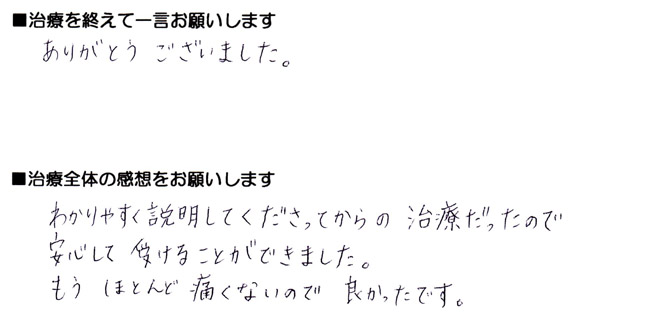 ■治療を終えて一言お願いします
ありがとう ございました。
■治療全体の感想をお願いします
わかりやすく説明してくださってからの 治療だったので
安心して 受けることができました。
もう ほとんど 痛くないので 良かったです。